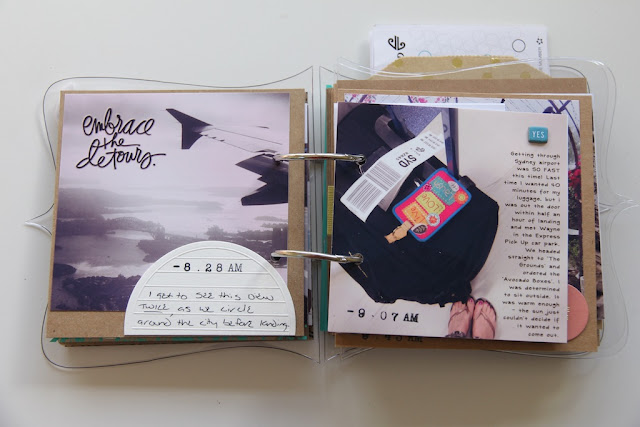 embrace
the
detours.
-8.28 AM
I get to see this view
TWICE as we circle
around the city before landing.
SYD
YES
Getting through
Sydney airport
was SO FAST
this time! Last
time I waited 40
minutes for my
luggage, but I
was out the door
within half an
hour of landing
and met Wayne
in the Express
Pick Up car park.
We headed
straight to 'The
Grounds' and
ordered the
'Avocado Boxes'. I
was determined
to sit outside. It
was warm enough
- the sun just
couldn't decide if
it wanted to
come out.
-9.07 AM